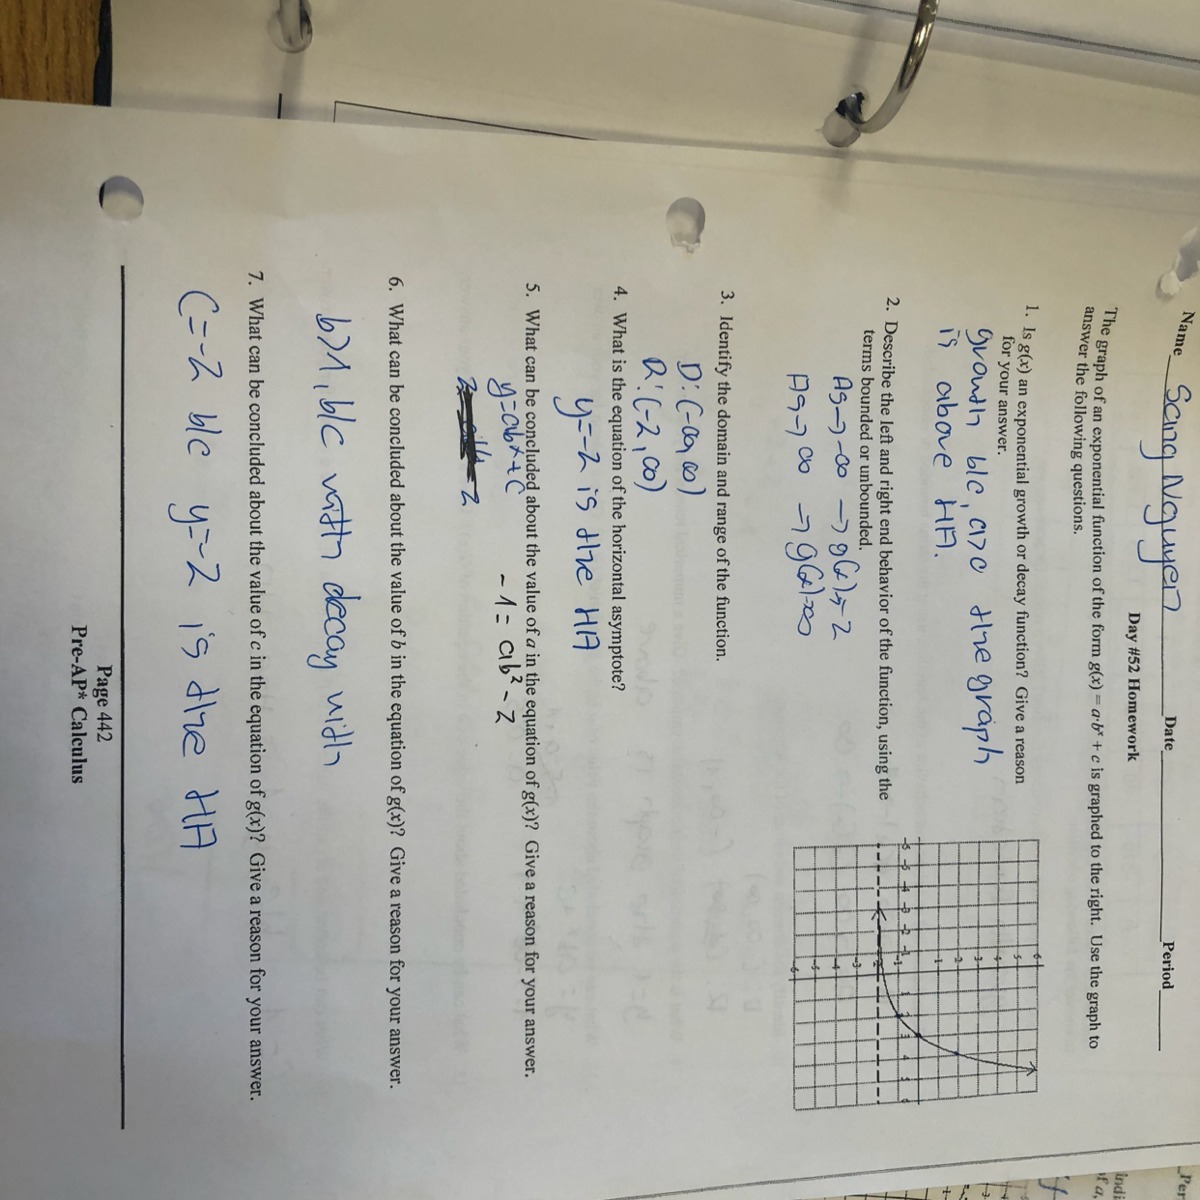 Name Sang Nguyen Date Period
Day #52 Homework
The graph of an exponential function of the form g(x) = a·bˣ + c is graphed to the right. Use the graph to
answer the following questions.
1. Is g(x) an exponential growth or decay function? Give a reason
for your answer.
growth b/c, a>c the graph
is above HA.
2. Describe the left and right end behavior of the function, using the
terms bounded or unbounded.
As→-∞ → g(x)→-2
As→ ∞ → g(x)→∞
3. Identify the domain and range of the function.
D: (-∞, ∞)
R: (-2, ∞)
4. What is the equation of the horizontal asymptote?
y=-2 is the HA
5. What can be concluded about the value of a in the equation of g(x)? Give a reason for your answer.
y=abˣ+c
-1 = ab² - 2
6. What can be concluded about the value of b in the equation of g(x)? Give a reason for your answer.
b>1, b/c with decay with
7. What can be concluded about the value of c in the equation of g(x)? Give a reason for your answer.
C=-2 b/c y=-2 is the HA
Page 442
Pre-AP* Calculus